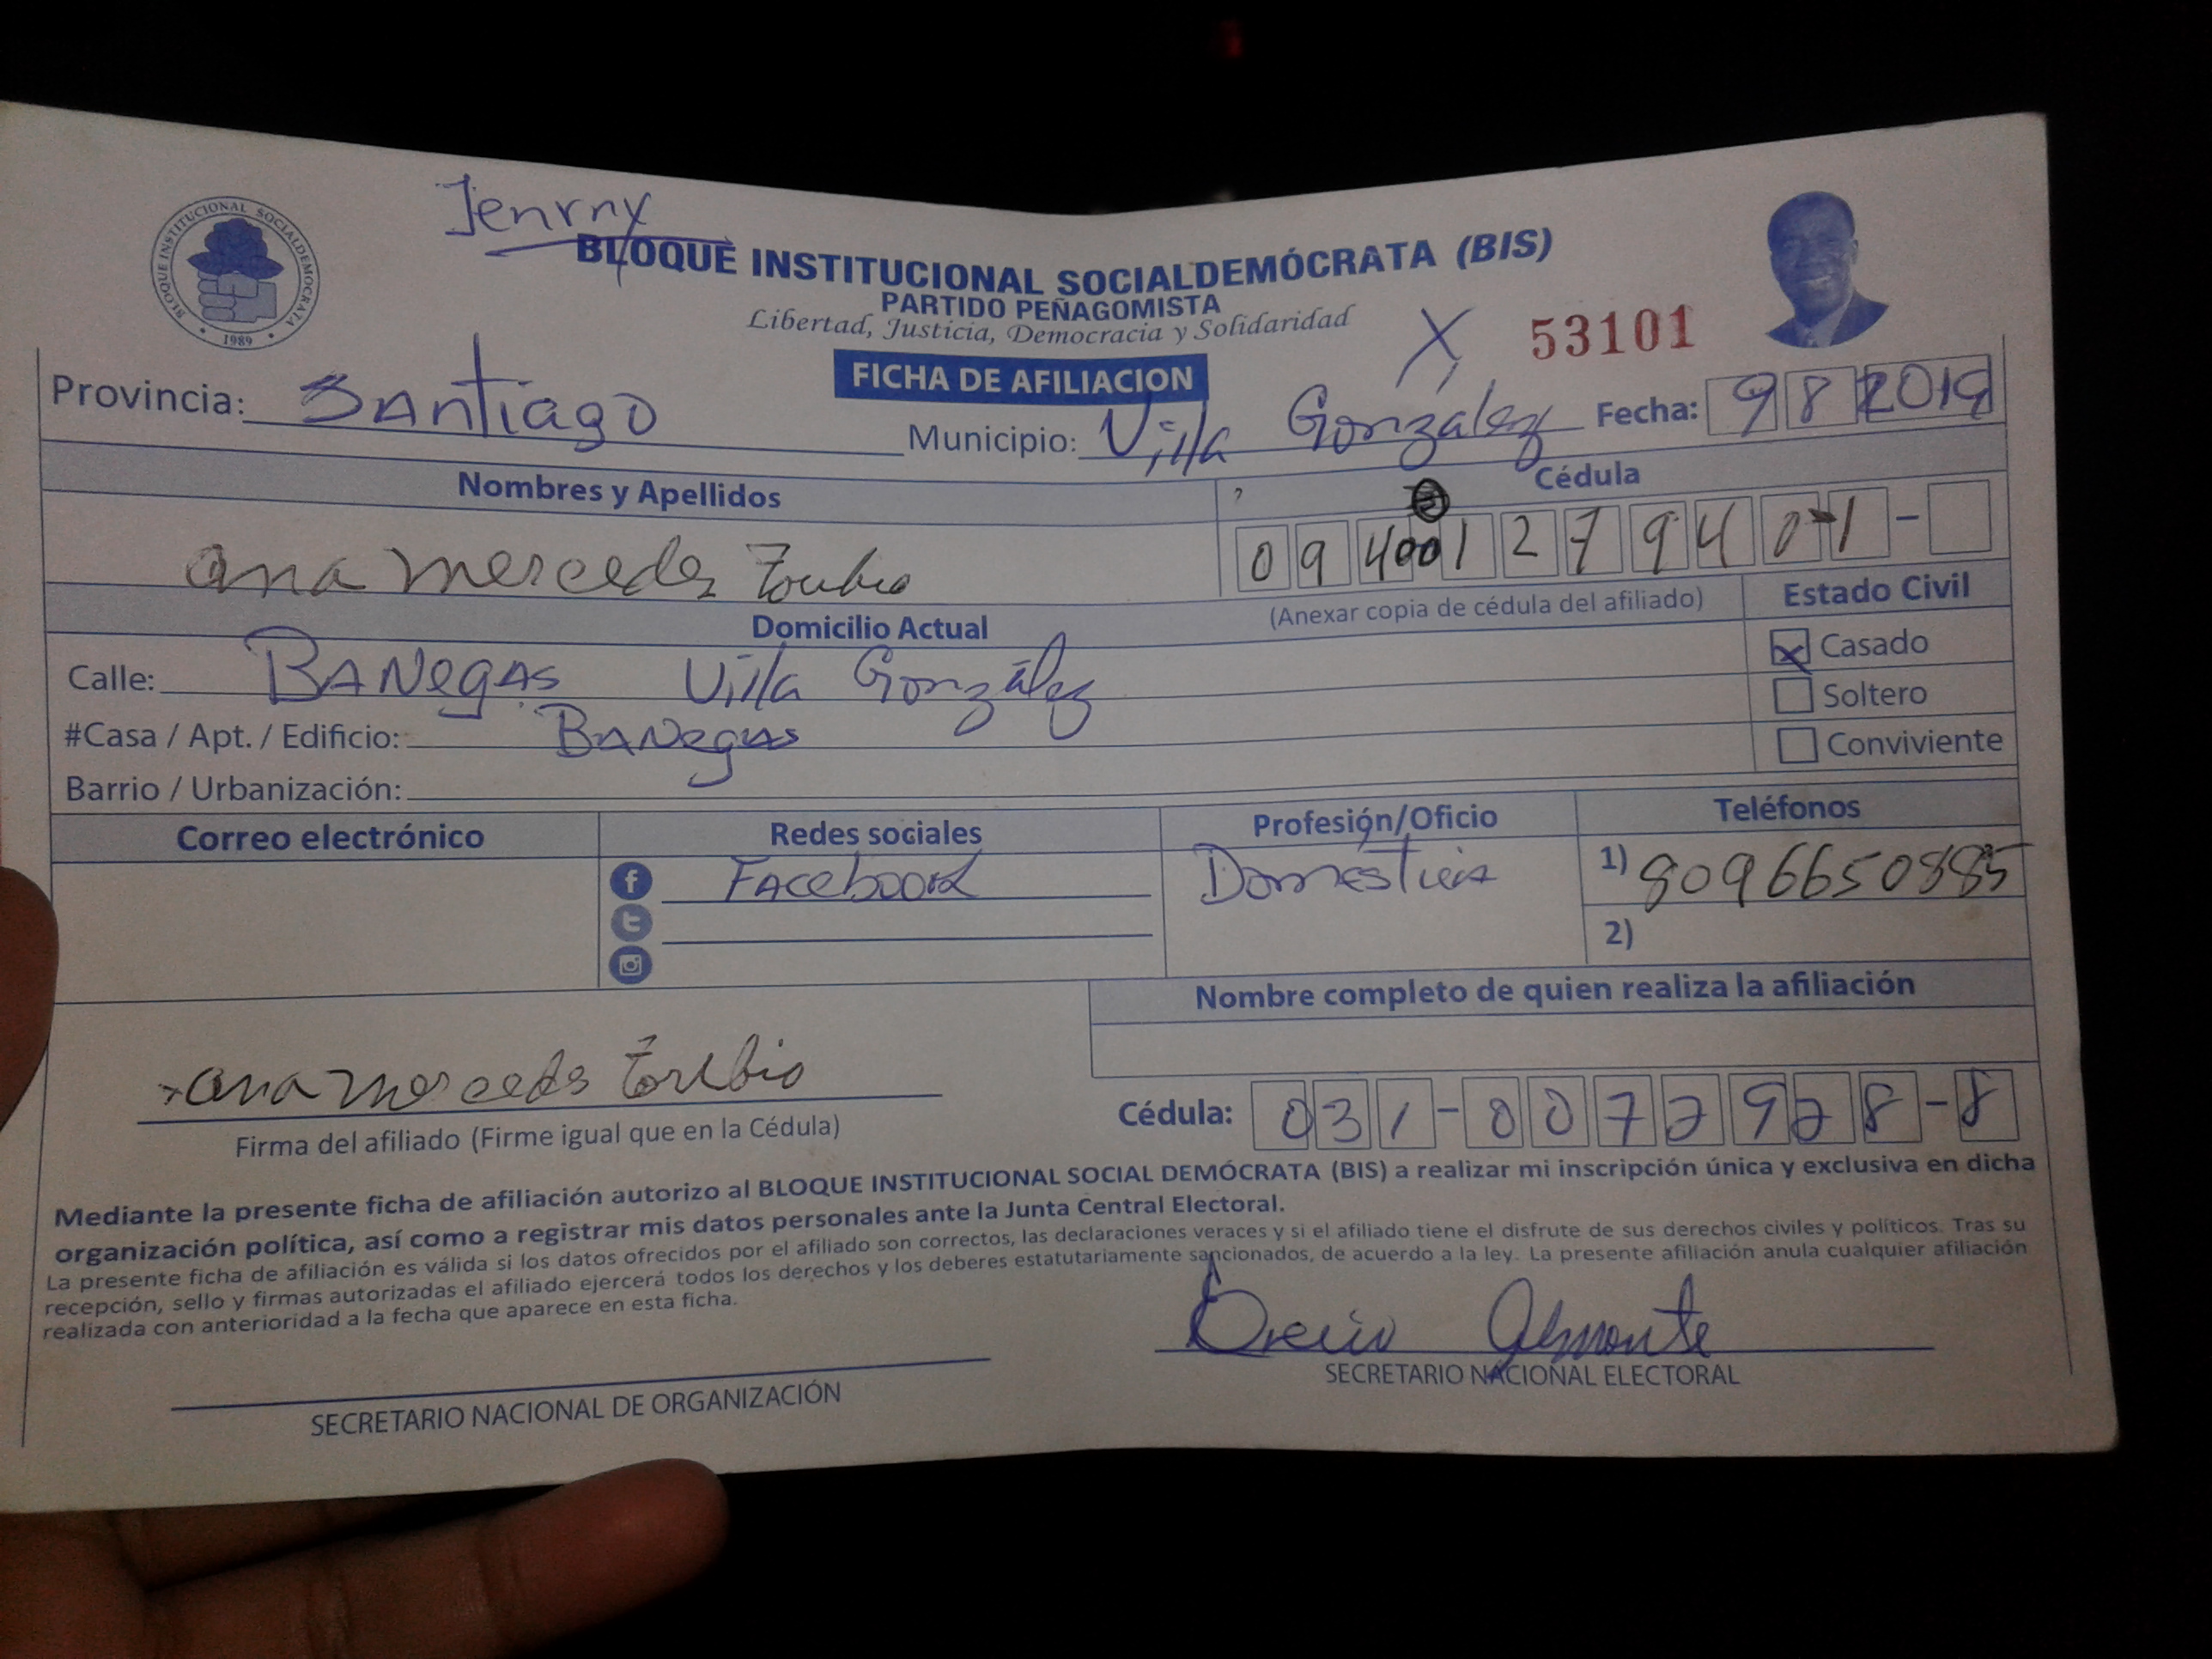 Jenrny
BLOQUE INSTITUCIONAL SOCIALDEMOCRATA
1989
BLOQUE INSTITUCIONAL SOCIALDEMÓCRATA (BIS)
PARTIDO PEÑAGOMISTA
Libertad, Justicia, Democracia y Solidaridad
X 53101
FICHA DE AFILIACION
Provincia: Santiago Municipio: Villa Gonzalez Fecha: 9 8 2019
Nombres y Apellidos Cédula
ana mercedes Toribio 0 9 4 00 1 2 7 9 4 0-1 -
(Anexar copia de cédula del afiliado) Estado Civil
Domicilio Actual
Calle: BANegAS Villa González
#Casa / Apt. / Edificio: BANegAs
Barrio / Urbanización:
Casado
Soltero
Conviviente
Correo electrónico Redes sociales Profesión/Oficio Teléfonos
FAcebook Domestica 1) 8096650885
2)
Nombre completo de quien realiza la afiliación
ana merceds Toribio
Firma del afiliado (Firme igual que en la Cédula)
Cédula: 0 3 1 - 0 0 7 2 9 2 8 - 8
Mediante la presente ficha de afiliación autorizo al BLOQUE INSTITUCIONAL SOCIAL DEMÓCRATA (BIS) a realizar mi inscripción única y exclusiva en dicha
organización política, así como a registrar mis datos personales ante la Junta Central Electoral.
La presente ficha de afiliación es válida si los datos ofrecidos por el afiliado son correctos, las declaraciones veraces y si el afiliado tiene el disfrute de sus derechos civiles y políticos. Tras su
recepción, sello y firmas autorizadas el afiliado ejercerá todos los derechos y los deberes estatutariamente sancionados, de acuerdo a la ley. La presente afiliación anula cualquier afiliación
realizada con anterioridad a la fecha que aparece en esta ficha.
Almonte
SECRETARIO NACIONAL DE ORGANIZACIÓN
SECRETARIO NACIONAL ELECTORAL